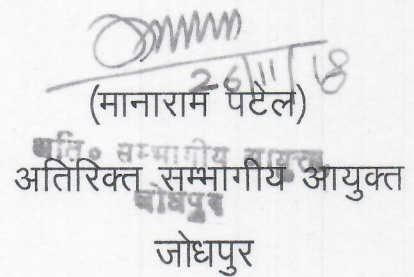 26/11/18
(मानाराम पटेल)
अति० सम्भागीय आयुक्त
अतिरिक्त सम्भागीय आयुक्त
जोधपुर
जोधपुर